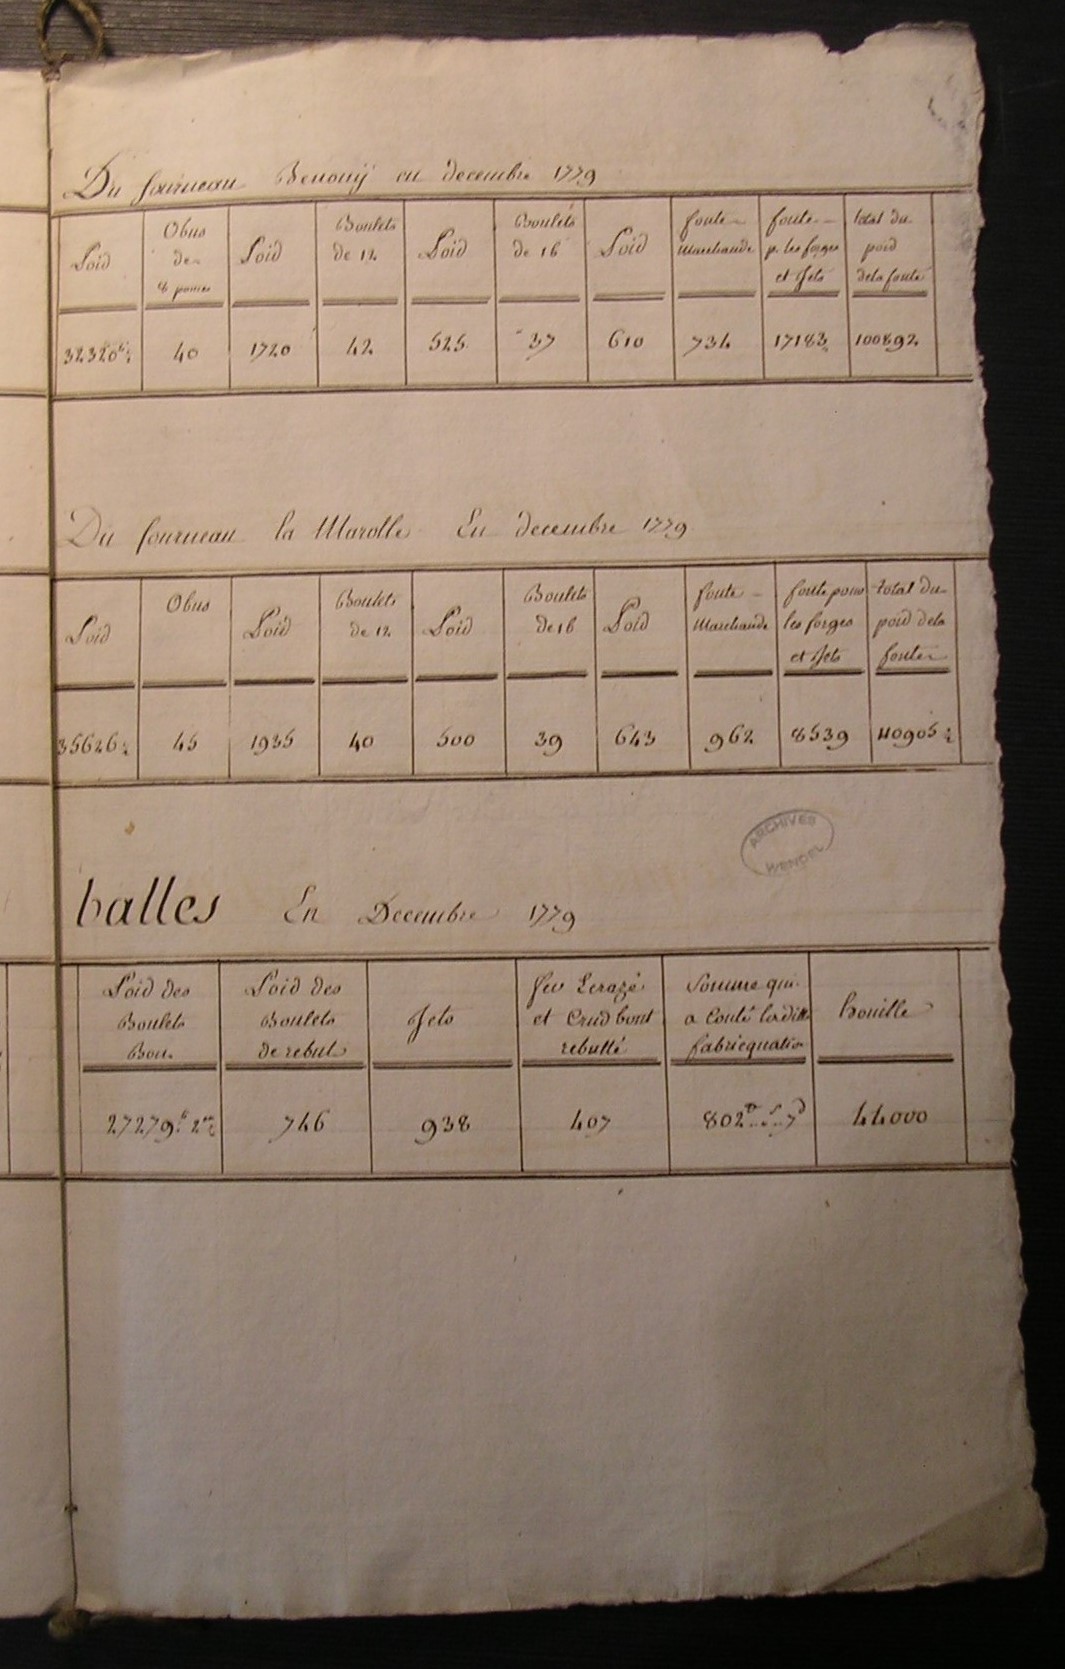 Du fourneau Benouÿ en decembre 1779
Poid | Obus de 8 pouces | Poid | Boulets de 12 | Poid | Boulets de 16 | Poid | fonte Marchande | fonte p. les forges et Jets | total du poid dela fonte
32320 ½ | 40 | 1720 | 42 | 525 | 37 | 610 | 734 | 17183 | 100892
Du fourneau la Marolle En decembre 1779
Poid | Obus | Poid | Boulets de 12 | Poid | Boulets de 16 | Poid | fonte Marchande | fonte pour les forges et Jets | total du poid dela fonte
35626 ½ | 45 | 1935 | 40 | 500 | 39 | 643 | 962 | 8539 | 110905 ½
ARCHIVES
WENDEL
balles En Decembre 1779
Poid des Boulets Bon | Poid des Boulets de rebut | Jets | fer Ecrazé et Crud bout rebutté | Somme qui a Couté lardite fabricquation | houille
27279 | 746 | 938 | 407 | 802 7 d | 44000